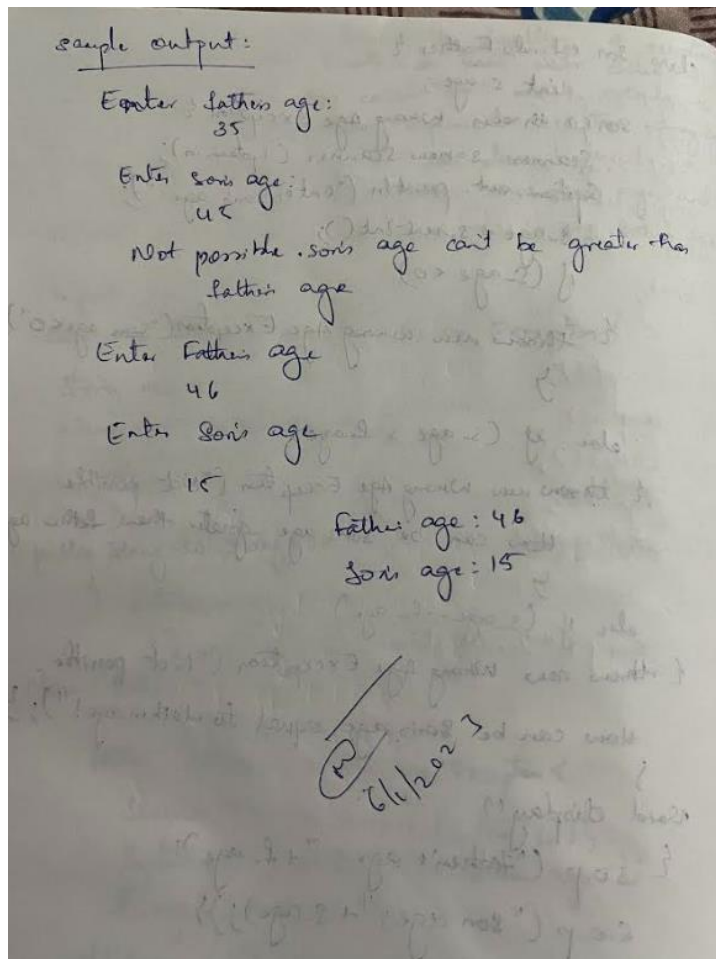 sample output:
Enter father's age:
35
Enter son's age:
45
Not possible. son's age can't be greater than
father's age
Enter Father's age
46
Enter Son's age
15
Father age: 46
Son's age: 15
6/1/2023